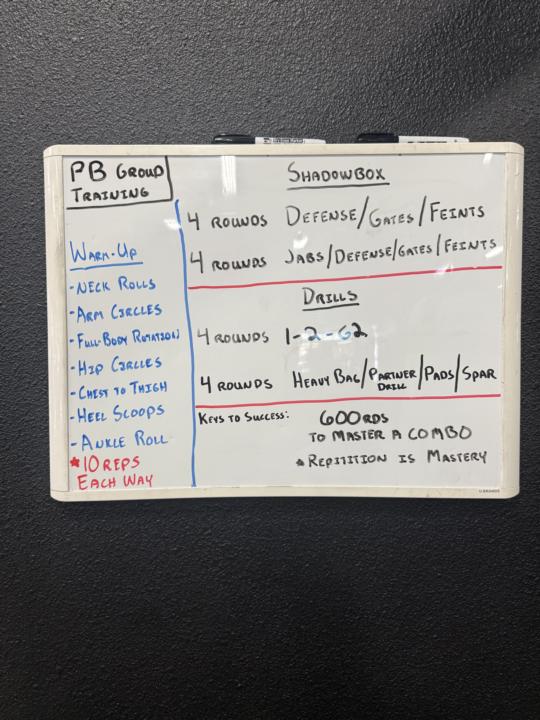 PB GROUP
TRAINING
WARM-UP
-NECK ROLLS
-ARM CIRCLES
-FULL-BODY ROTATION
-HIP CIRCLES
-CHEST TO THIGH
-HEEL SCOOPS
-ANKLE ROLL
*10 REPS
EACH WAY
SHADOWBOX
4 ROUNDS DEFENSE/GATES/FEINTS
4 ROUNDS JABS/DEFENSE/GATES/FEINTS
DRILLS
4 ROUNDS 1-2-G2
4 ROUNDS HEAVY BAG/PARTNER DRILL/PADS/SPAR
KEYS TO SUCCESS: 600 RDS
TO MASTER A COMBO
*REPITITION IS MASTERY